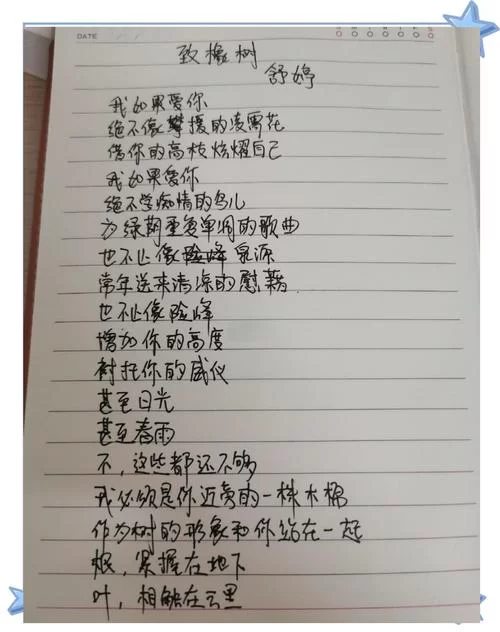 DATE
致橡树
舒婷
我如果爱你
绝不像攀援的凌霄花
借你的高枝炫耀自己
我如果爱你
绝不学痴情的鸟儿
为绿荫重复单调的歌曲
也不止像泉源
常年送来清凉的慰藉
也不止像险峰
增加你的高度
衬托你的威仪
甚至日光
甚至春雨
不，这些都还不够
我必须是你近旁的一株木棉
作为树的形象和你站在一起
根，紧握在地下
叶，相触在云里